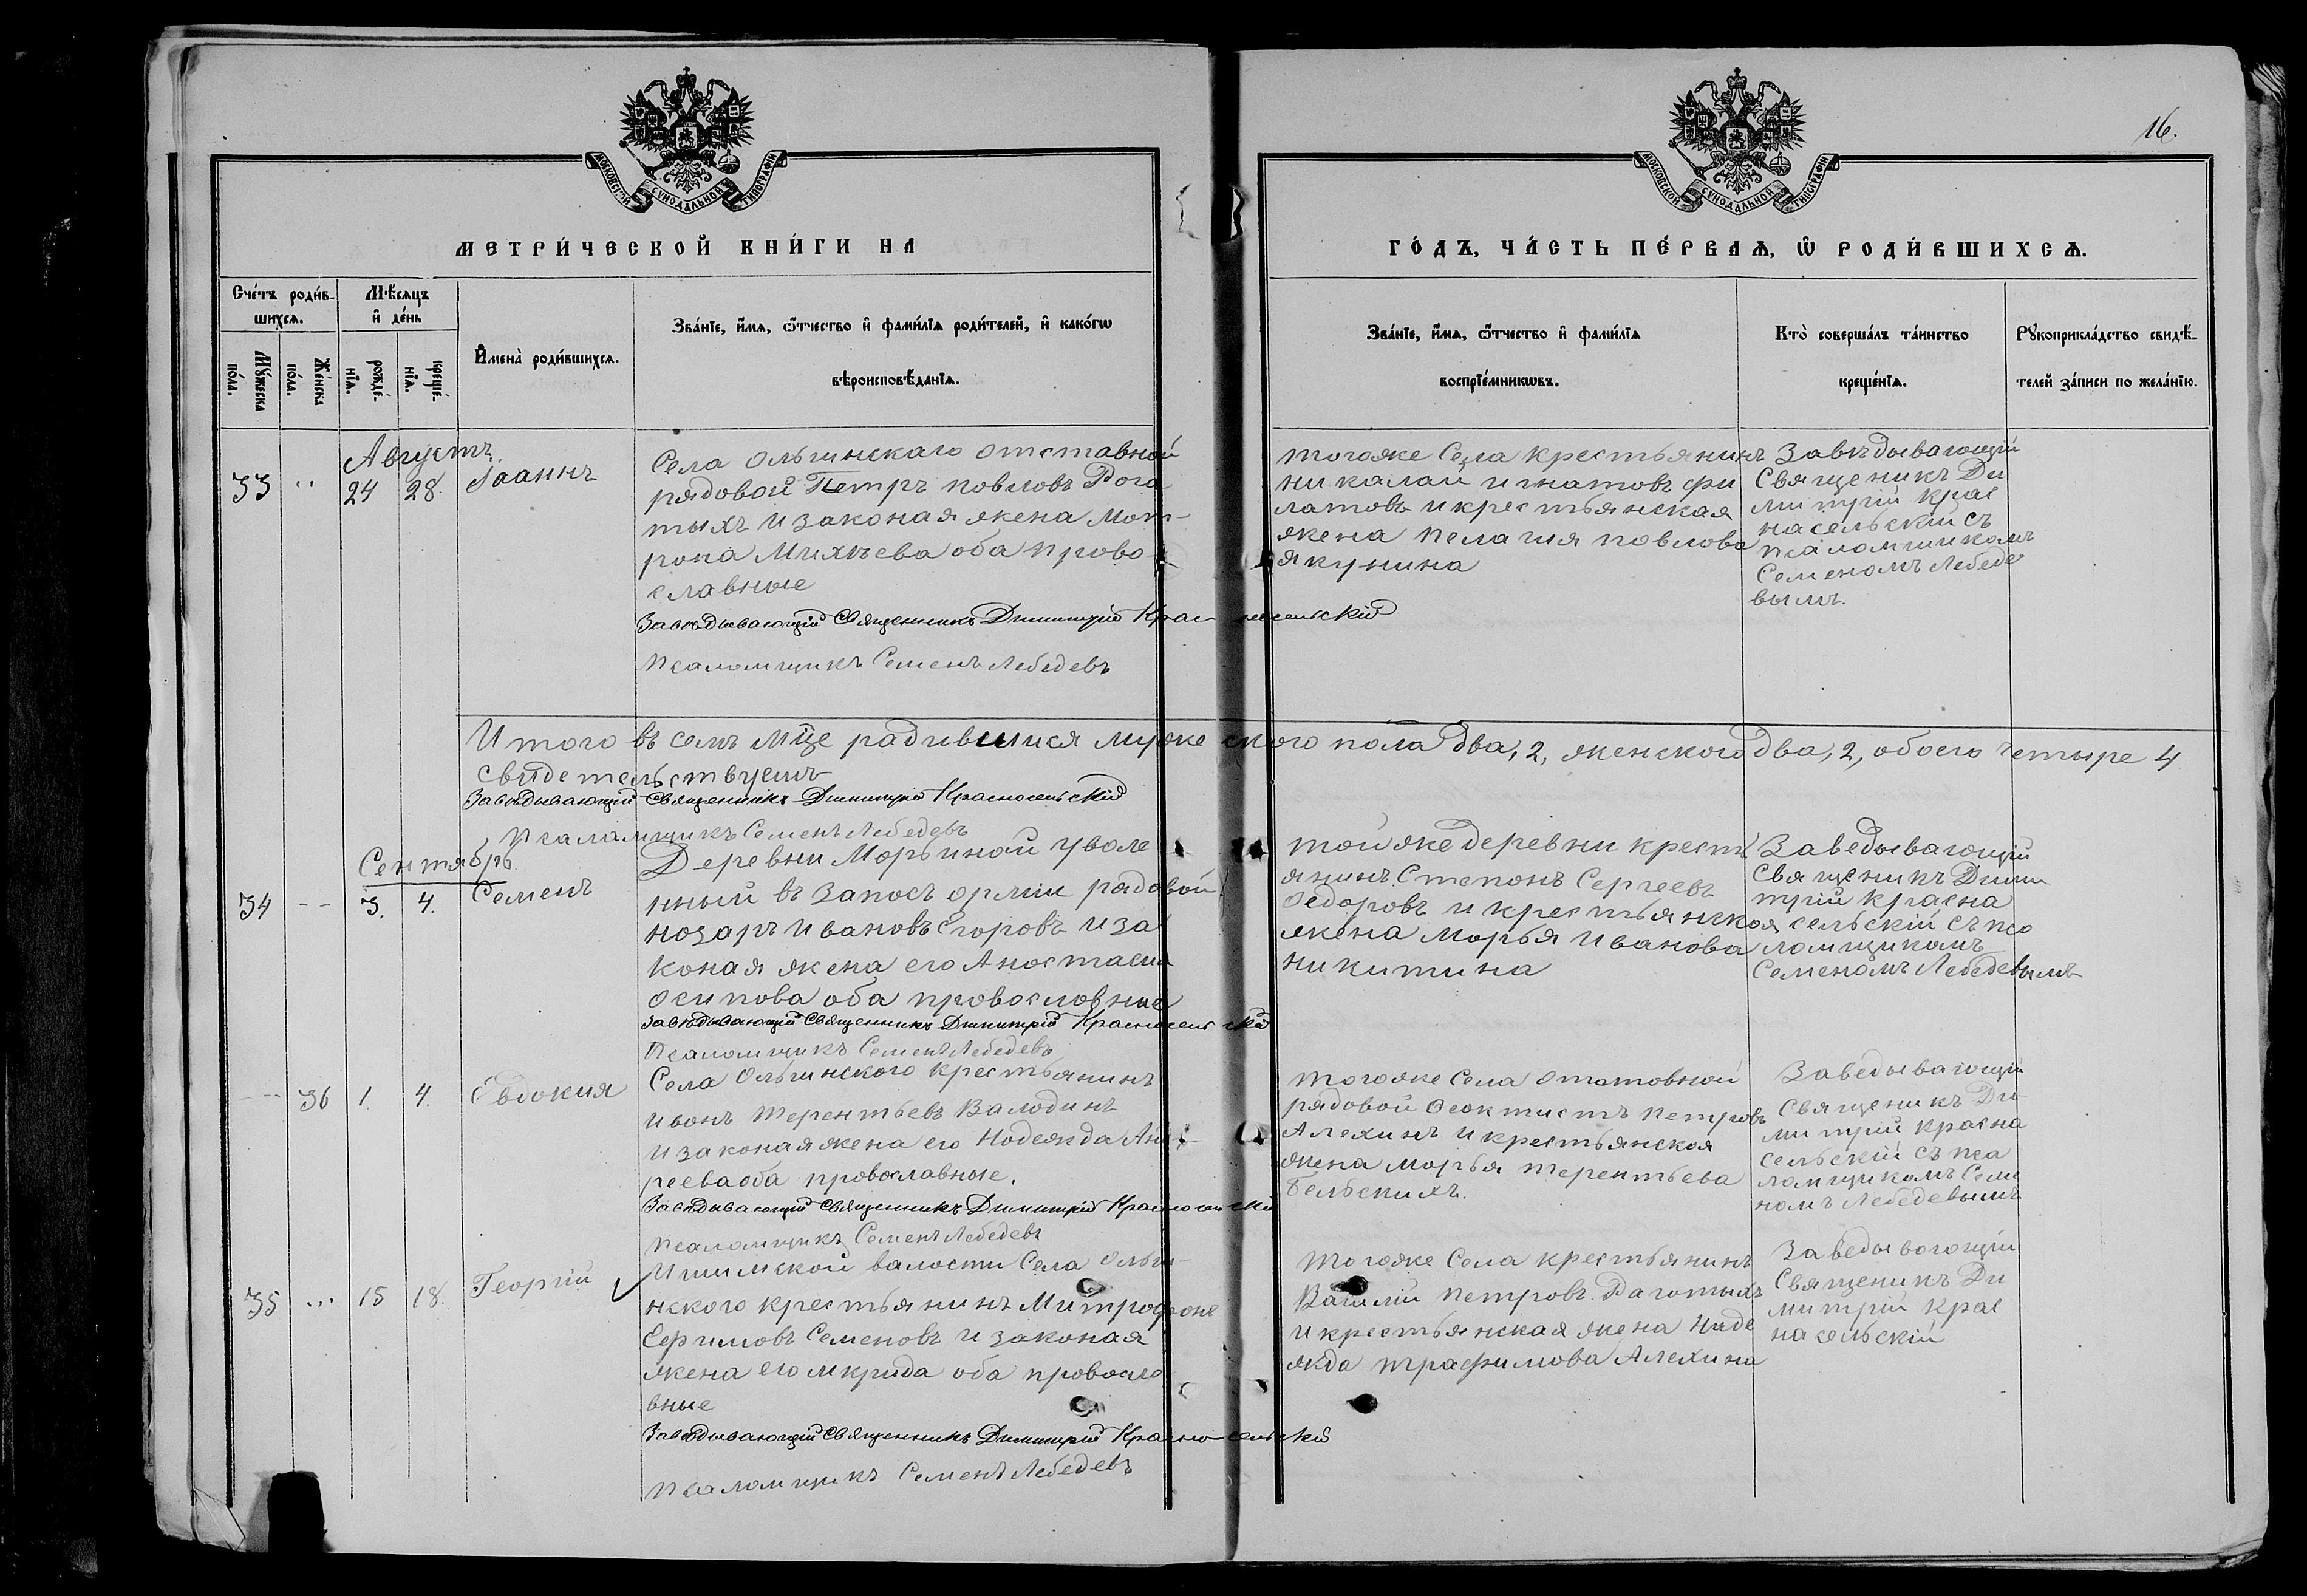 16.
МОСКОВСКОЙ СѴНОДАЛЬНОЙ ТИПОГРАФІИ
МОСКОВСКОЙ СѴНОДАЛЬНОЙ ТИПОГРАФІИ
МЕТРИ́ЧЕСКОЙ КНИ́ГИ НА
ГО́ДЪ, ЧА́СТЬ ПЕ́РВАѦ, Ѽ РОДИ́ВШИХСѦ.
Сче́тъ роди́в-
шихсѧ.
Мꙋ́жеска
по́ла.
Же́нска
по́ла.
Мѣ́сѧцъ
и҆ де́нь
рожде́-
нїѧ.
креще́-
нїѧ.
И҆мена̀ роди́вшихсѧ.
Зва́нїе, и҆́мѧ, ѻ҆́тчество и҆ фами́лїѧ роди́телей, и҆ како́гѡ
вѣроисповѣ́данїѧ.
Зва́нїе, и҆́мѧ, ѻ҆́тчество и҆ фами́лїѧ
воспрїе́мникѡвъ.
Кто̀ соверша́лъ та́инство
креще́нїѧ.
Рꙋкоприкла́дство свидѣ́-
телей за́писи по жела́нїю.
Августъ
33 " 24 28. Іоаннъ
Села Ольгинскаго отставной
рядовой Петръ Повловъ Рога
тыхъ и законая жена Мот-
рона Михѣева оба прово
славные
Завѣдывающій Священникъ Димитрій Красносельскій
Псаломщикъ Семенъ Лебедевъ
тогоже Села крестьянинъ
николай игнатовъ фи
латовъ и крестьянская
жена пелагия повлова
якунина
Завѣдывающій
Священикъ Ди
митрій Крас
насельский съ
псаломшикомъ
Семеномъ Лебеде
вымъ.
Итого въ семъ мц͠е радившихся мужеского пола два, 2, женского два, 2, обоего четыре 4
свидетельствуемъ
Завѣдывающій Священникъ Димитрій Красносельскій
Псаламщикъ Семенъ Лебедевъ
Сентябрь
34 -- 3. 4. Семенъ
Деревни Марьиной уволе
нный въ запосъ армии рядовой
нозаръ ивановъ Егоровъ и за
коная жена его Аностасия
осипова оба провословные
Завѣдывающій Священникъ Димитрій Красносельскій
Псаломщикъ Семенъ Лебедевъ
той же деревни кресть
янинъ Степонъ Сергеевъ
Ѳедоровъ и крестьянская
жена Морья Иванова
никитина
Заведывающій
Священикъ Дими
трій Красна
сельскій съ псо
ломщикомъ
Семеномъ Лебедевымъ
-- 36 1. 4. Евдокия
Села Ольгинского крестьянинъ
ивонъ терентьевъ Валодинъ
и законая жена его Нодежда Анд
реева оба провославные.
Завѣдывающій Священникъ Димитрій Красносельскій
Псаломщикъ Семенъ Лебедевъ
тогоже Села отстовной
рядовой Ѳеоктистъ петровъ
Алехинъ и крестьянская
жена морья терентьева
бельскихъ.
Заведывающій
Священикъ Ди
митрій Красна
сельскій съ пса
ломщикомъ Семе
номъ Лебедевымъ
35 ... 15 18. Георгій
Ишимской валости Села Ольги-
нского крестьянинъ Митрофонъ
Ефимовъ Семеновъ и законая
жена его мкрида оба провосло
вные
Завѣдывающій Священникъ Димитрій Красносельскій
Псаломщикъ Семенъ Лебедевъ
тогоже Села крестьянинъ
Василій петровъ Рагатыхъ
и крестьянская жена Наде
жда трафимова Алехина
Заведывогощій
Священикъ Ди
митрій Крас
насельскій